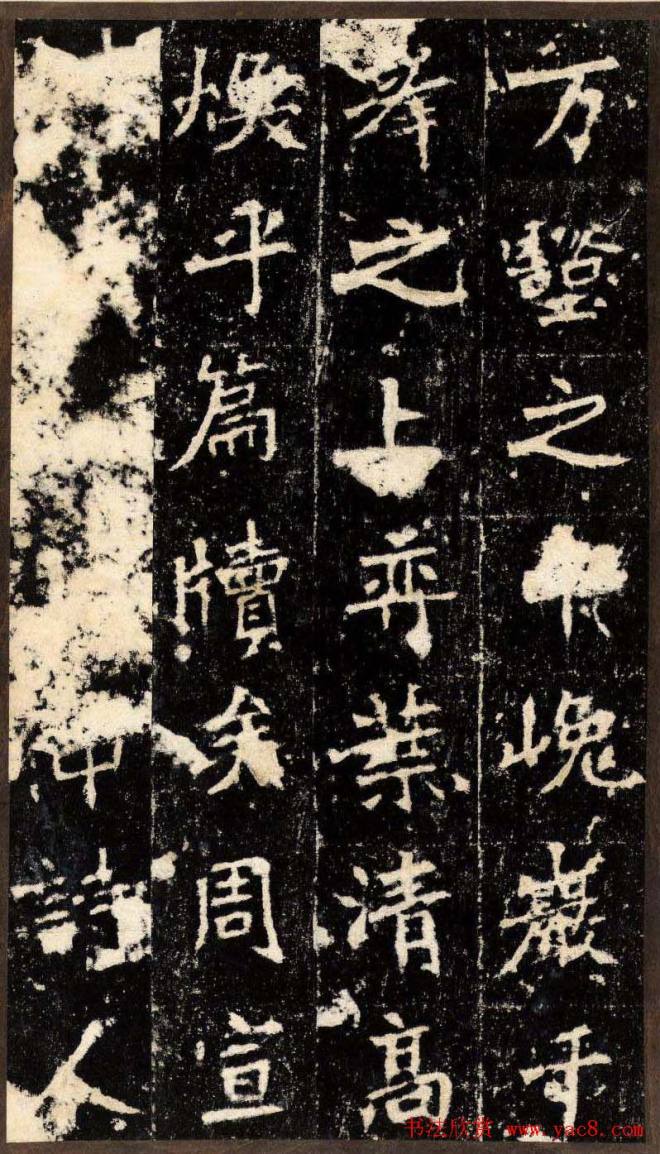 万壑之峞巖乎
峯之上弈葉清高
煥乎篇牘矣周宣
申詩人
书法欣赏 www.yac8.com